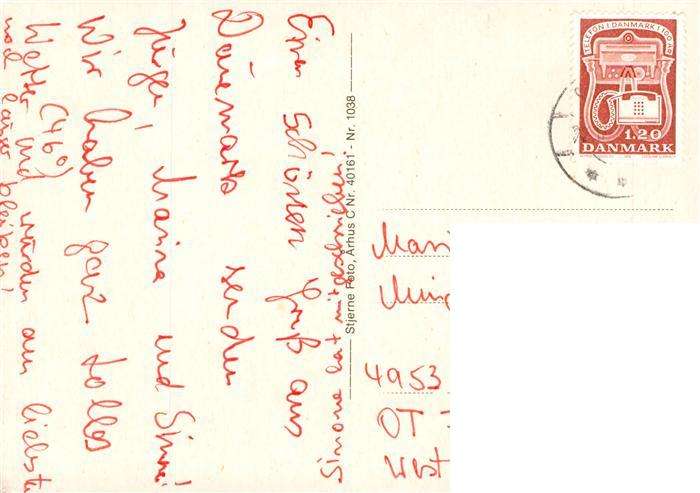 Einen schönen Gruß aus
Dänemark senden
Jürgen, Marina und
Wir haben ganz tolles
Wetter (46°)
und würden am liebsten
noch länger bleiben!
Simone hat mitgeschrieben.
Stjerne Foto, Århus C Nr. 40161 - Nr. 1038
TELEFON I DANMARK I 100 ÅR
1.20
DANMARK
4953
OT